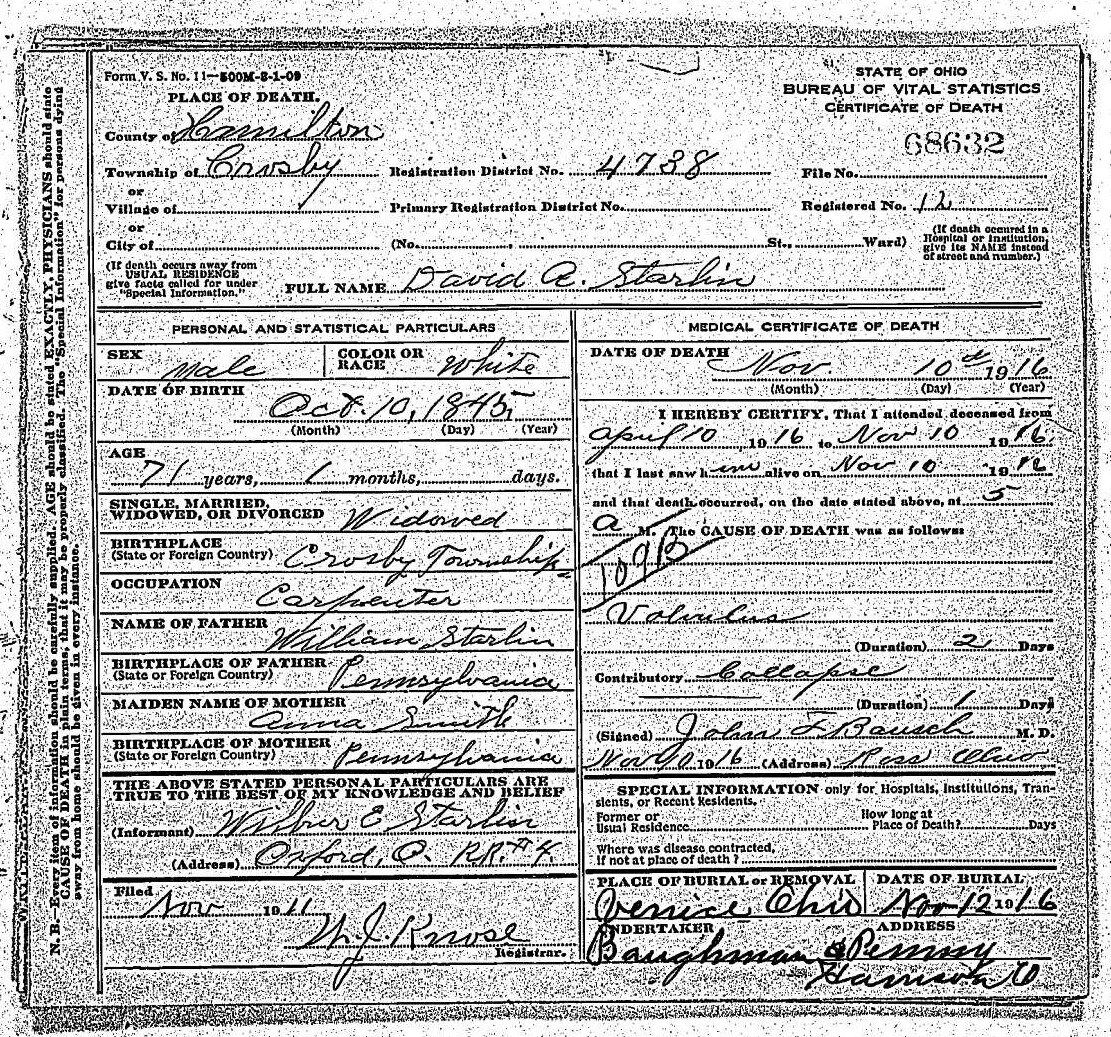 Form V. S. No. 11—500M-8-1-09
STATE OF OHIO
BUREAU OF VITAL STATISTICS
CERTIFICATE OF DEATH
PLACE OF DEATH.
County of Hamilton
68632
Township of Crosby Registration District No. 4738 File No.
or
Village of Primary Registration District No. Registered No. 12
or
City of (No. , St., Ward)
(If death occured in a
Hospital or institution,
give its NAME instead
of street and number.)
(If death occurs away from
USUAL RESIDENCE
give facts called for under
"Special Information.")
FULL NAME David A. Starlin
PERSONAL AND STATISTICAL PARTICULARS
SEX Male COLOR OR RACE White
DATE OF BIRTH
Oct. 10, 1845
(Month) (Day) (Year)
AGE
71 years, 1 months, days.
SINGLE, MARRIED,
WIDOWED, OR DIVORCED Widowed
BIRTHPLACE
(State or Foreign Country) Crosby Township
OCCUPATION
Carpenter
NAME OF FATHER
William Starlin
BIRTHPLACE OF FATHER
(State or Foreign Country) Pennsylvania
MAIDEN NAME OF MOTHER
Anna Smith
BIRTHPLACE OF MOTHER
(State or Foreign Country) Pennsylvania
THE ABOVE STATED PERSONAL PARTICULARS ARE
TRUE TO THE BEST OF MY KNOWLEDGE AND BELIEF
(Informant) Wilber E Starlin
(Address) Oxford, O. RR. # 4.
Filed
Nov 1911
M. J. Knose
Registrar.
MEDICAL CERTIFICATE OF DEATH
DATE OF DEATH
Nov. 10 1916
(Month) (Day) (Year)
I HEREBY CERTIFY, That I attended deceased from
April 10 1916 to Nov 10 1916
that I last saw him alive on Nov 10 1916
and that death occurred, on the date stated above, at 5
a M. The CAUSE OF DEATH was as follows:
109B
Volvulus
(Duration) 2 Days
Contributory Collapse
(Duration) 1 Days
(Signed) John F Bausch M. D.
Nov 10 1916 (Address) Ross Ohio
SPECIAL INFORMATION only for Hospitals, Institutions, Tran-
sients, or Recent Residents.
Former or
Usual Residence
How long at
Place of Death? Days
Where was disease contracted,
If not at place of death?
PLACE OF BURIAL or REMOVAL DATE OF BURIAL
Venice Ohio Nov 12 1916
UNDERTAKER ADDRESS
Baughman & Penny
Harrison O
N. B.—Every item of information should be carefully supplied. AGE should be stated EXACTLY, PHYSICIANS should state
CAUSE OF DEATH in plain terms, that it may be properly classified. The "Special Information" for persons dying
away from home should be given in every instance.